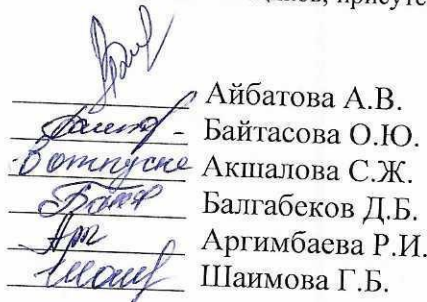 присутс
Айбатова А.В.
Байтасова О.Ю.
В отпуске Акшалова С.Ж.
Балгабеков Д.Б.
Аргимбаева Р.И.
Шаимова Г.Б.